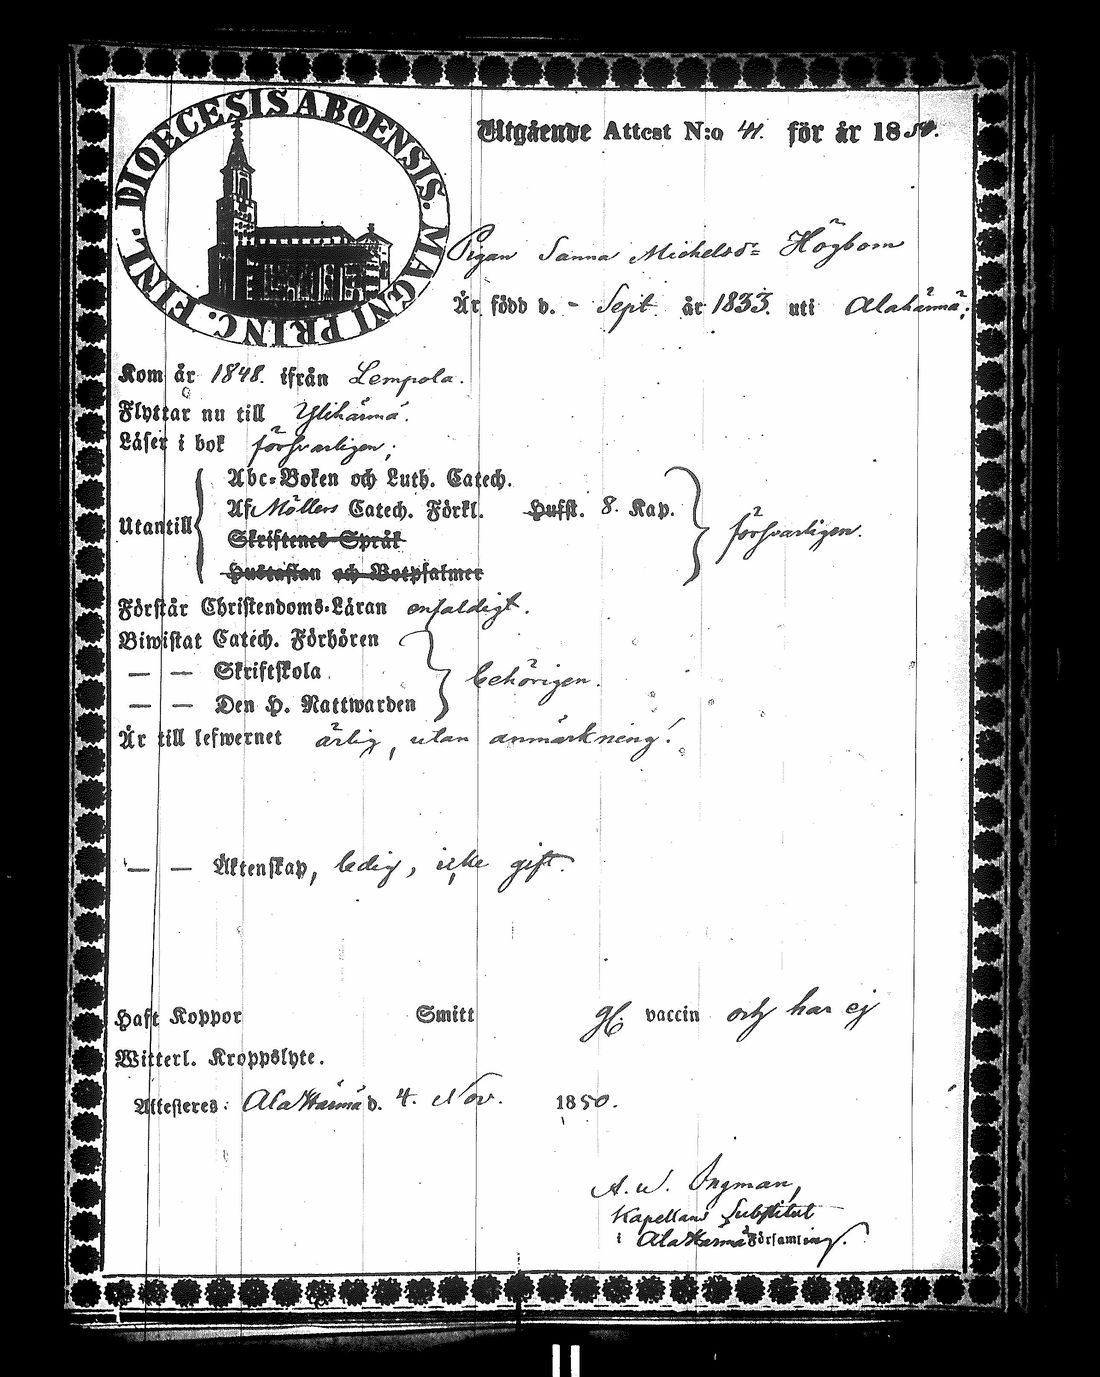 DIOECESIS ABOENSIS. MAGNI PRINC. FINL.
Utgående Attest N:o 41. för år 1850.
Pigan Sanna Michelsdr Högbom
Är född d. - Sept år 1833. uti Alahärmä;
Kom år 1848. ifrån Lempola.
Flyttar nu till Ylihärmä.
Läser i bok försvarligen;
Abc-Boken och Luth. Catech.
Utantill Af Möllers Catech. Förkl. Hufst. 8. Kap. försvarligen.
Skriftenes Språk
Hustaflan och Botpsalmer
Förstår Christendoms-Läran enfaldigt.
Biwistat Catech. Förhören
— — Skriftskola behörigen.
— — Den H. Nattwarden
Är till lefwernet ärlig, utan anmärkning!
— — Äktenskap, ledig, icke gift.
Haft Koppor Smitt vaccin och har ej
Witterl. Kroppslyte.
Attesteres: AlaHärmä d. 4. Nov. 1850.
A. W. Ingman,
Kapellans Substitut
i AlaHärmä Församling.